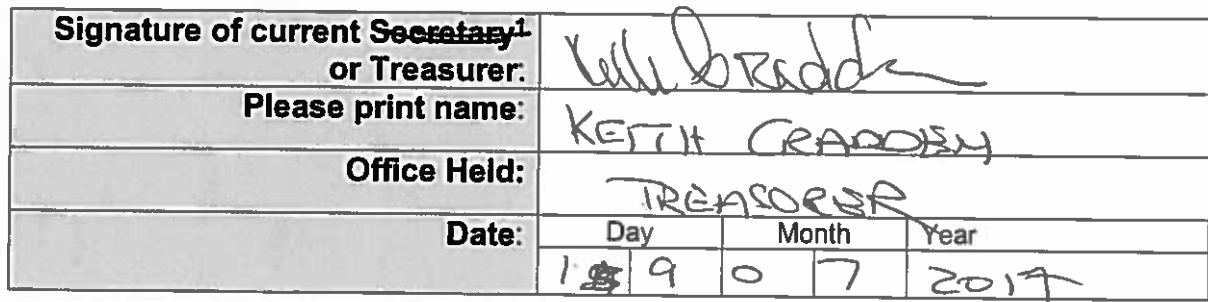 Signature of current Secretary1
or Treasurer:
Please print name:
KEITH CRADDEN
Office Held:
TREASORER
Date:
Day Month Year
1 9 0 7 2017